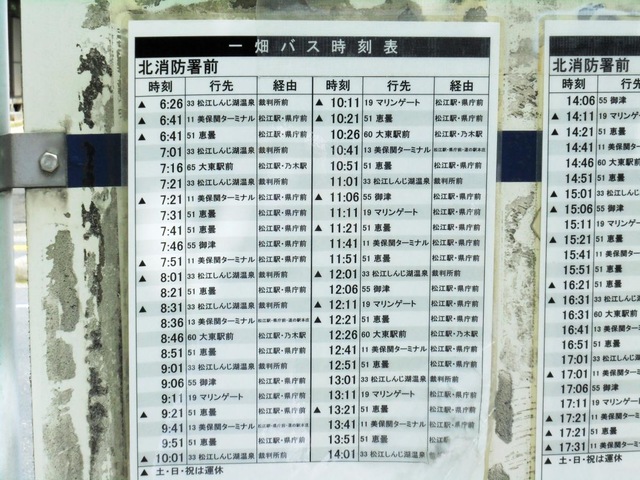 一畑バス時刻表
北消防署前
時刻 行先 経由 時刻 行先 経由
▲ 6:26 33 松江しんじ湖温泉 裁判所前 ▲ 10:11 19 マリンゲート 松江駅・県庁前
▲ 6:41 11 美保関ターミナル 松江駅・県庁前 ▲ 10:21 51 恵曇 松江駅・県庁前
▲ 6:41 51 恵曇 松江駅・県庁前 10:26 60 大東駅前 松江駅・乃木駅
7:01 33 松江しんじ湖温泉 裁判所前 10:41 13 美保関ターミナル
7:16 65 大東駅前 松江駅・乃木駅 10:51 51 恵曇 松江駅・県庁前
7:21 33 松江しんじ湖温泉 裁判所前 11:01 33 松江しんじ湖温泉 裁判所前
▲ 7:21 11 美保関ターミナル 松江駅・県庁前 ▲ 11:06 55 御津 松江駅・県庁前
7:31 51 恵曇 松江駅・県庁前 11:11 19 マリンゲート 松江駅・県庁前
7:41 51 恵曇 松江駅・県庁前 ▲ 11:21 51 恵曇 松江駅・県庁前
7:46 55 御津 松江駅・県庁前 11:41 11 美保関ターミナル 松江駅・県庁前
▲ 7:51 11 美保関ターミナル 松江駅・県庁前 11:51 51 恵曇 松江駅・県庁前
▲ 8:01 33 松江しんじ湖温泉 裁判所前 ▲ 12:01 33 松江しんじ湖温泉 裁判所前
8:21 51 恵曇 松江駅・県庁前 12:06 55 御津 松江駅・県庁前
▲ 8:31 33 松江しんじ湖温泉 裁判所前 ▲ 12:11 19 マリンゲート 松江駅・県庁前
8:36 13 美保関ターミナル ▲ 12:21 51 恵曇 松江駅・県庁前
8:46 60 大東駅前 松江駅・乃木駅 12:26 60 大東駅前 松江駅・乃木駅
8:51 51 恵曇 松江駅・県庁前 12:41 11 美保関ターミナル 松江駅・県庁前
9:01 33 松江しんじ湖温泉 裁判所前 12:51 51 恵曇 松江駅・県庁前
9:06 55 御津 松江駅・県庁前 13:01 33 松江しんじ湖温泉 裁判所前
9:11 19 マリンゲート 松江駅・県庁前 13:11 19 マリンゲート 松江駅・県庁前
▲ 9:21 51 恵曇 松江駅・県庁前 ▲ 13:21 51 恵曇 松江駅・県庁前
9:41 13 美保関ターミナル 13:41 11 美保関ターミナル 松江駅・県庁前
9:51 51 恵曇 松江駅・県庁前 13:51 51 恵曇 松江駅
▲ 10:01 33 松江しんじ湖温泉 裁判所前 14:01 33 松江しんじ湖温泉 裁判所前
▲ 土・日・祝は運休
北消防署前
時刻 行先
14:06 55 御津
▲ 14:11 19 マリンゲー
▲ 14:21 51 恵曇
14:41 11 美保関ターミ
14:46 60 大東駅前
14:51 51 恵曇
▲ 15:01 33 松江しんじ湖
▲ 15:06 55 御津
15:11 19 マリンゲー
▲ 15:21 51 恵曇
15:41 11 美保関ターミ
15:51 51 恵曇
▲ 16:21 51 恵曇
▲ 16:31 33 松江しんじ湖
16:31 60 大東駅前
16:41 13 美保関ターミ
16:51 51 恵曇
17:01 11 美保関ターミ
▲ 17:01 33 松江しんじ湖
17:06 55 御津
17:11 19 マリンゲー
▲ 17:21 11 美保関ターミ
▲ 17:21 51 恵曇
▲ 17:31 11 美保関ターミ
▲ 土・日・祝は運休